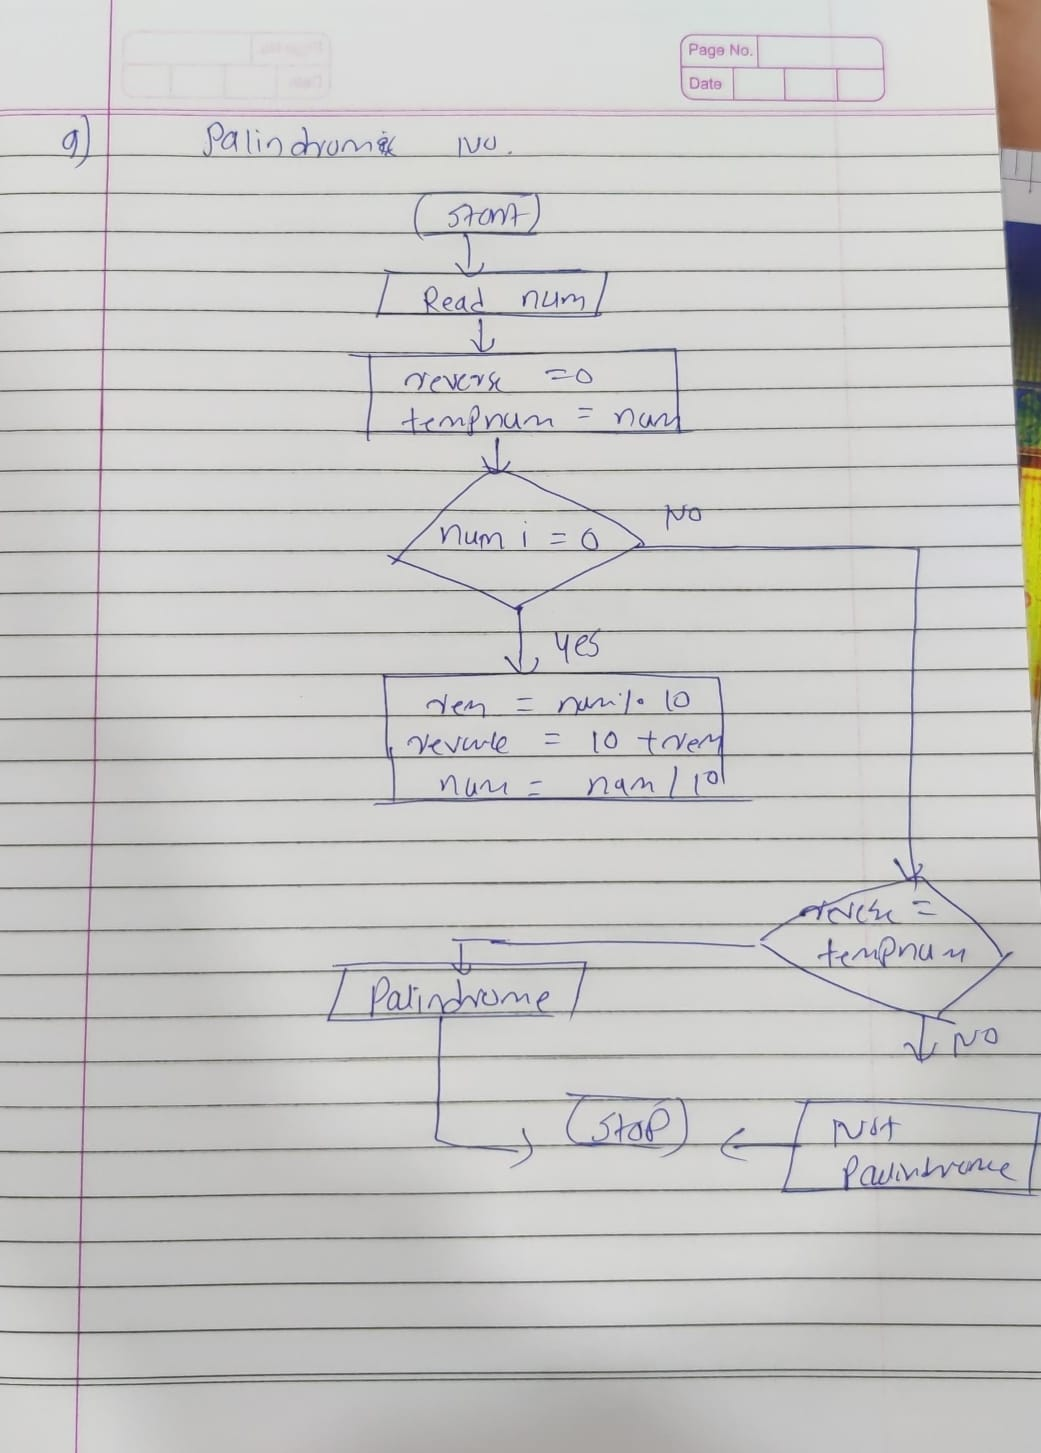 Page No.
Date
9) Palindrome No.
Start
Read num
reverse = 0
tempnum = num
num i = 0
No
Yes
rem = num % 10
reverse = 10 + rem
num = num / 10
reverse =
tempnum
Palindrome
No
Stop
Not
Palindrome